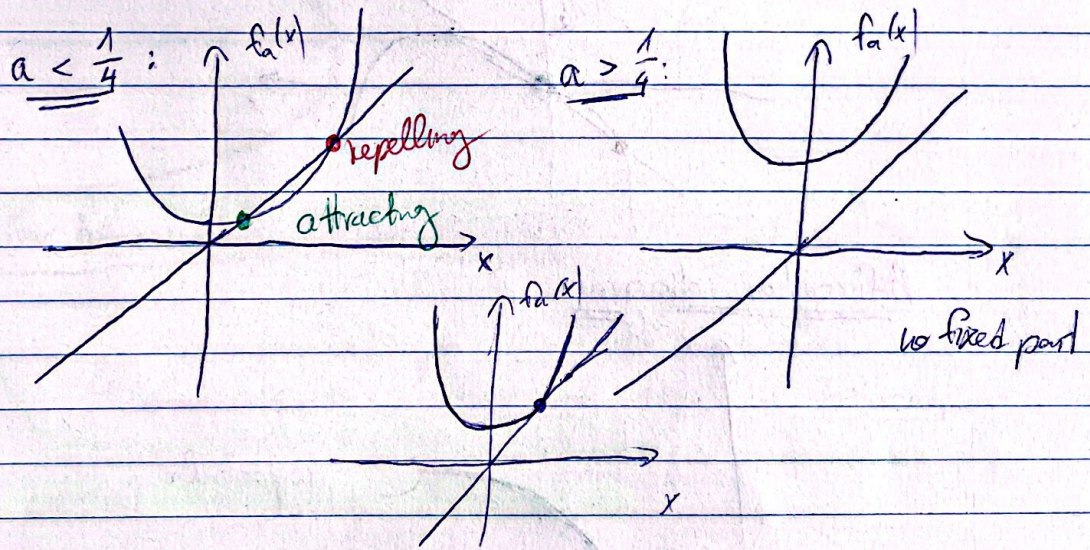 a < 1/4 :
fₐ(x)
repelling
attractng
x
a > 1/4 :
fₐ(x)
x
no fixed point
fₐ(x)
x